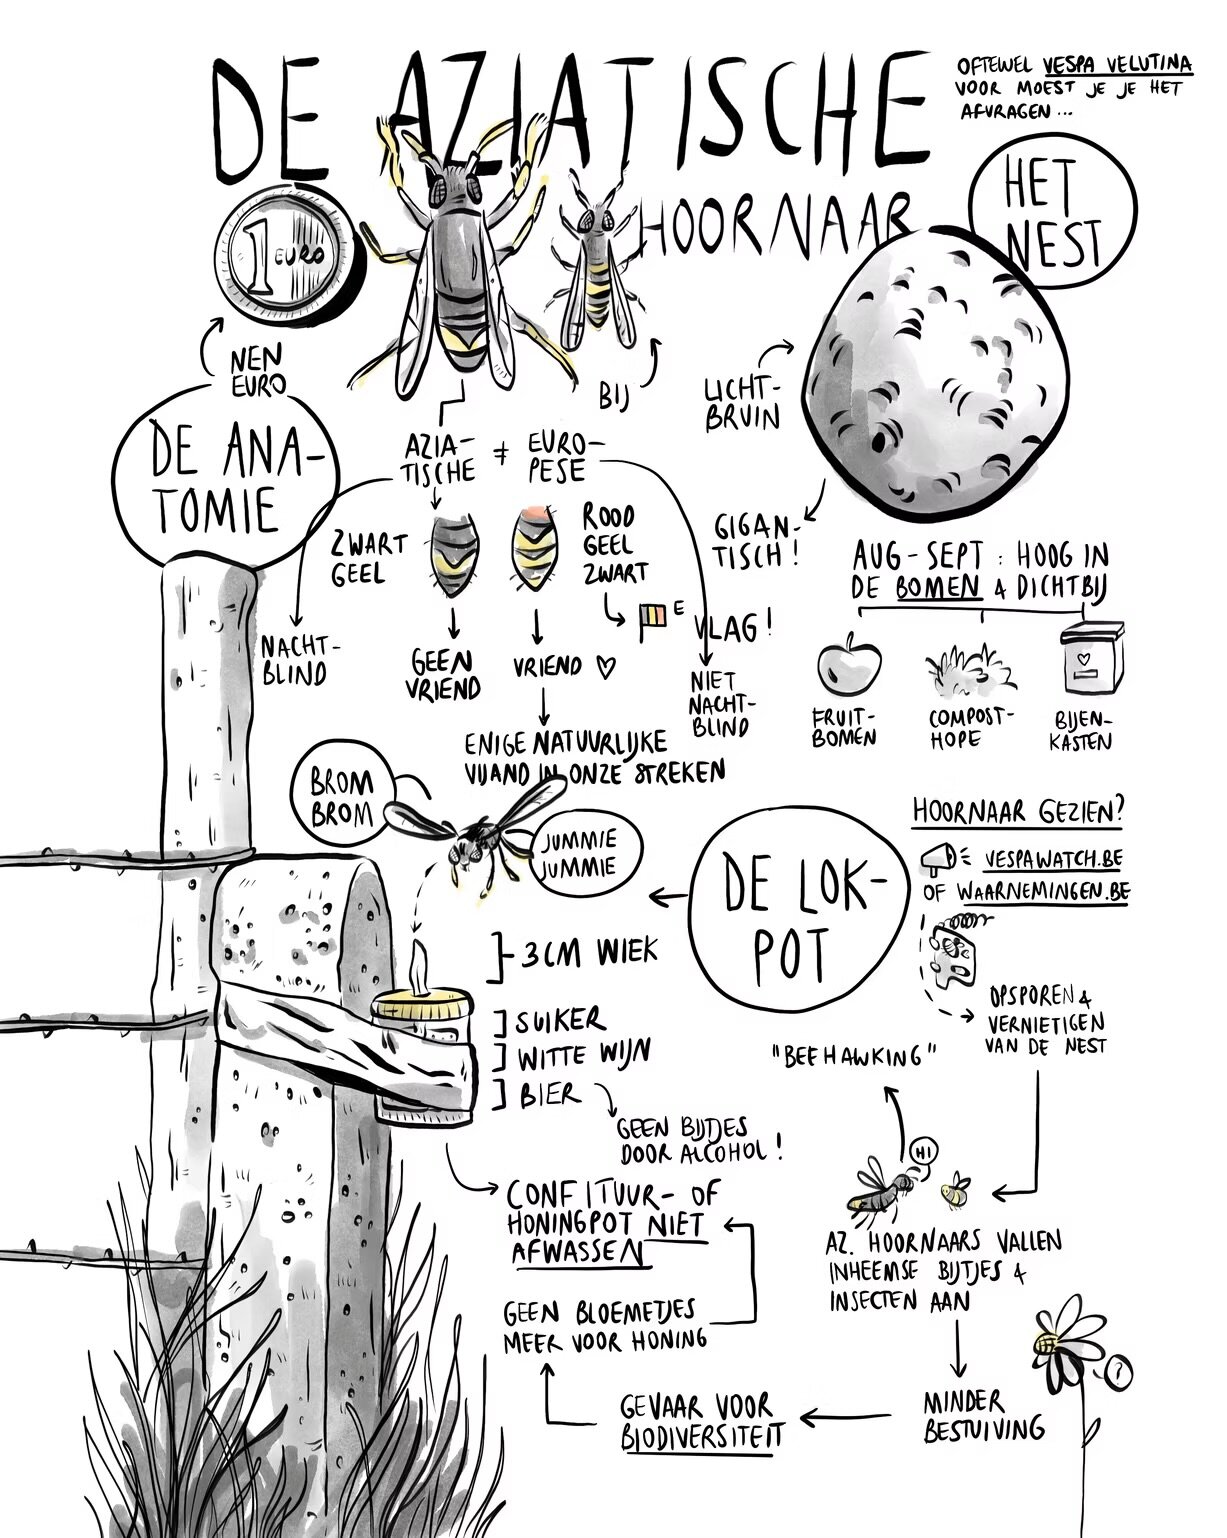 DE AZIATISCHE
HOORNAAR
OFTEWEL VESPA VELUTINA
VOOR MOEST JE JE HET
AFVRAGEN ...
1 EURO
NEN
EURO
BIJ
HET
NEST
LICHT-
BRUIN
GIGAN-
TISCH!
DE ANA-
TOMIE
AZIA-
TISCHE
≠
EURO-
PESE
ZWART
GEEL
ROOD
GEEL
ZWART
E
VLAG!
NACHT-
BLIND
GEEN
VRIEND
VRIEND ♡
NIET
NACHT-
BLIND
ENIGE NATUURLIJKE
VIJAND IN ONZE STREKEN
AUG - SEPT : HOOG IN
DE BOMEN & DICHTBIJ
FRUIT-
BOMEN
COMPOST-
HOPE
BIJEN-
KASTEN
BROM
BROM
JUMMIE
JUMMIE
DE LOK-
POT
3CM WIEK
SUIKER
WITTE WIJN
BIER
GEEN BIJTJES
DOOR ALCOHOL!
CONFITUUR- OF
HONINGPOT NIET
AFWASSEN
HOORNAAR GEZIEN?
VESPAWATCH.BE
OF WAARNEMINGEN.BE
OPSPOREN &
VERNIETIGEN
VAN DE NEST
"BEEHAWKING"
HI
AZ. HOORNAARS VALLEN
INHEEMSE BIJTJES &
INSECTEN AAN
?
MINDER
BESTUIVING
GEVAAR VOOR
BIODIVERSITEIT
GEEN BLOEMETJES
MEER VOOR HONING